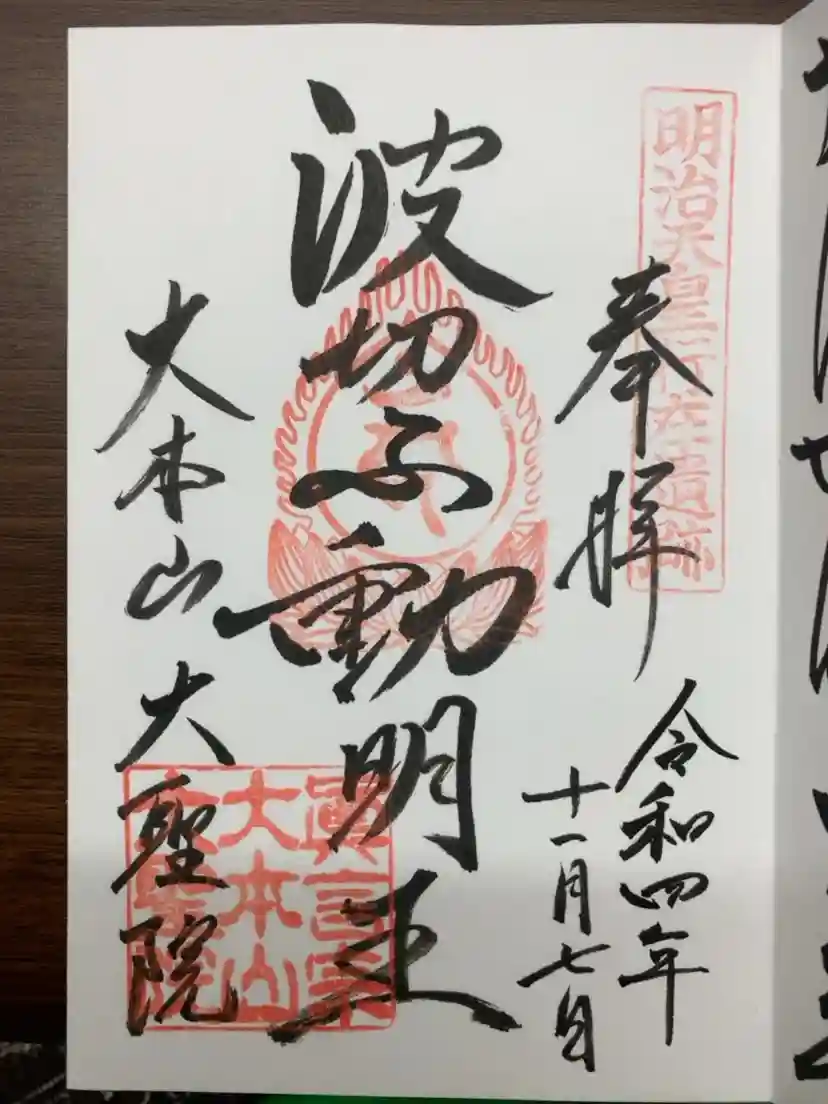 明治天皇行在遺跡
奉拝
令和四年
十一月七日
波切不動明王
大本山大聖院
眞言宗
大本山
大聖院